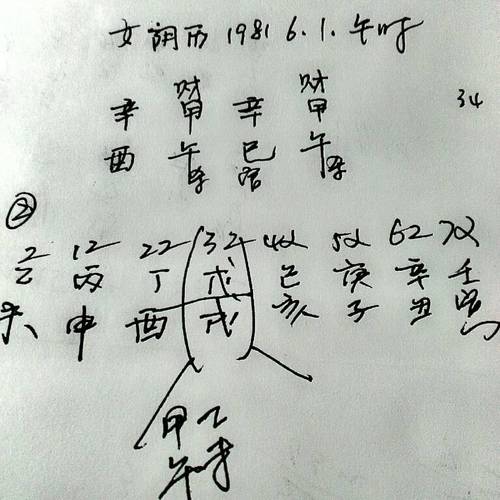 女 阴历 1981 6.1. 午时
财 财
辛 甲 辛 甲 34
酉 午杀 巳 午杀
官
②
2 12 22 32 42 52 62 72
乙 丙 丁 戊 己 庚 辛 壬
未 申 酉 戌 亥 子 丑 寅
甲 乙
午 未